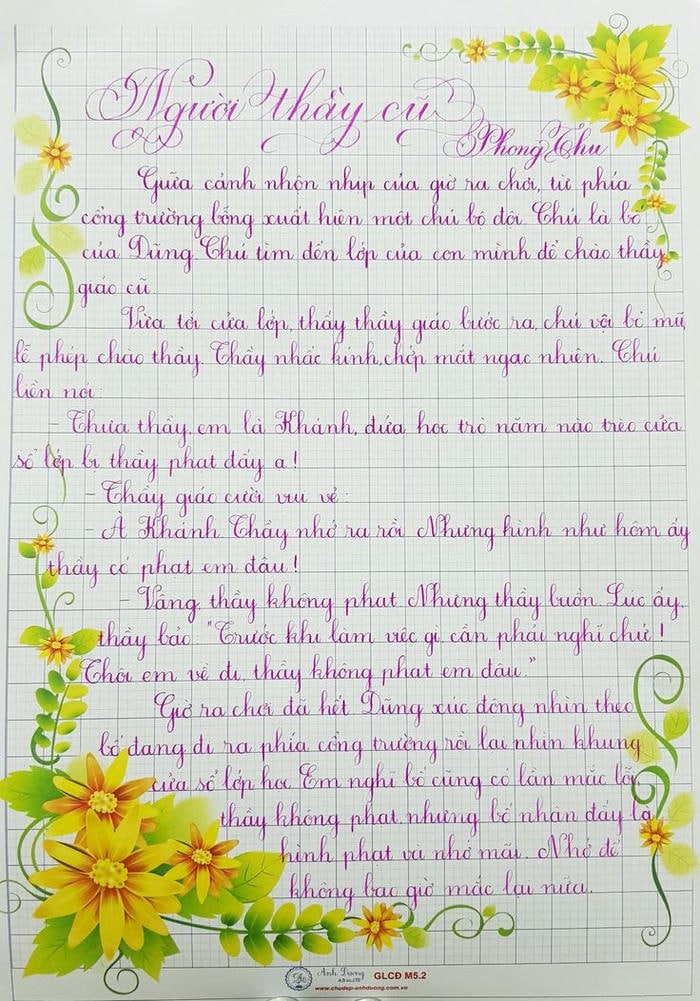 Người thầy cũ
Phong Thu
Giữa cảnh nhộn nhịp của giờ ra chơi, từ phía
cổng trường bỗng xuất hiện một chú bộ đội. Chú là bố
của Dũng. Chú tìm đến lớp của con mình để chào thầy
giáo cũ.
Vừa tới cửa lớp, thấy thầy giáo bước ra, chú vội bỏ mũ,
lễ phép chào thầy. Thầy nhấc kính, chớp mắt ngạc nhiên. Chú
liền nói:
- Thưa thầy, em là Khánh, đứa học trò năm nào trèo cửa
sổ lớp bị thầy phạt đấy ạ!
- Thầy giáo cười vui vẻ:
- À Khánh. Thầy nhớ ra rồi. Nhưng hình như hôm ấy
thầy có phạt em đâu!
- Vâng, thầy không phạt. Nhưng thầy buồn. Lúc ấy,
thầy bảo: "Trước khi làm việc gì, cần phải nghĩ chứ!
Thôi em về đi, thầy không phạt em đâu."
Giờ ra chơi đã hết. Dũng xúc động nhìn theo
bố đang đi ra phía cổng trường rồi lại nhìn khung
cửa sổ lớp học. Em nghĩ bố cũng có lần mắc lỗi,
thầy không phạt, nhưng bố nhận đấy là
hình phạt và nhớ mãi. Nhớ để
không bao giờ mắc lại nữa.
Ánh Dương
GLCĐ M5.2
www.chudep-anhduong.com.vn